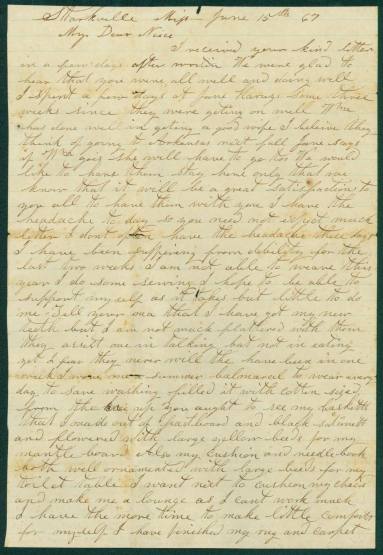 Starkville Miss June 15th 67
My Dear Niece
I received your kind letter
in a few days after written We were glad to
hear that you were all well and doing well
I spent a few days at Jane some three
weeks since they were geting on well Wm
has done well in geting a good wife I believe they
think of going to Arkansas next fall Jane says
if Wm goes she will have to go too We would
like to have them stay here only that we
know that it will be a great satisfaction to
you all to have them with you I have the
headache to day so you need not expect much
letter I dont often have the headache these days
I have been suffering from debility for the
last two weeks I am not able to weave this
year I do some sewing I hope to be able to
support myself as it takes but little to do
me Tell your ma that I have got my new
teeth but I am not much flattered with them
they assist me in talking but not in eating
yet I fear they never will the have been in one
week I wove one summer balmoral to wear every
day to save washing filled it with cotton sized
from the up You ought to see my baskett
that I made out of and black
and flowered with large yellow beeds for my
mantle board Also my cushion and needlebook
both well ornamented with large beeds for my
toilet table I want next to cushion my chairs
and make me a lounge as I cant work much
I have the more time to make little comforts
for myself I have finished my rug and carpet